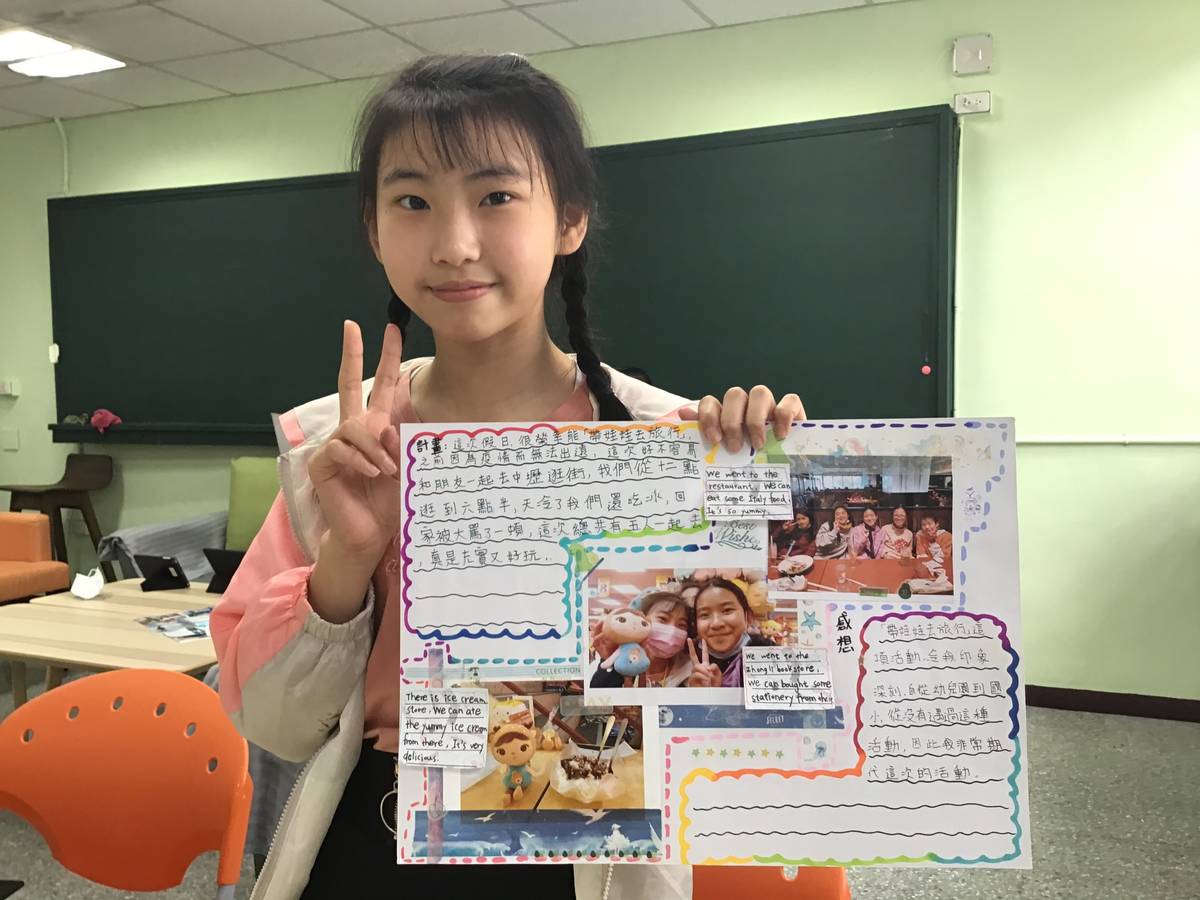 計畫:這次假日,很榮幸能「帶娃娃去旅行」,
之前因為疫情而無法出遠,這次好不容易
和朋友一起去中壢逛街,我們從十二點
逛到六點半,天冷了我們還吃冰,回
家被大罵了一頓,這次總共有五人一起去
,真是充實又好玩.
We went to the
restaurant. We can
eat some Italy food.
It's so yummy.
Best
Wishes
感想
「帶娃娃去旅行」這
項活動,令我印象
深刻,自從幼兒園到國
小,從沒有遇過這種
活動,因此我非常期
代這次的活動.
We went to the
Zhongli bookstore.
We can bought some
stationery from their
COLLECTION
There is ice cream
store. We can ate
the yummy ice cream
from there, It's very
delicious.
SECRET